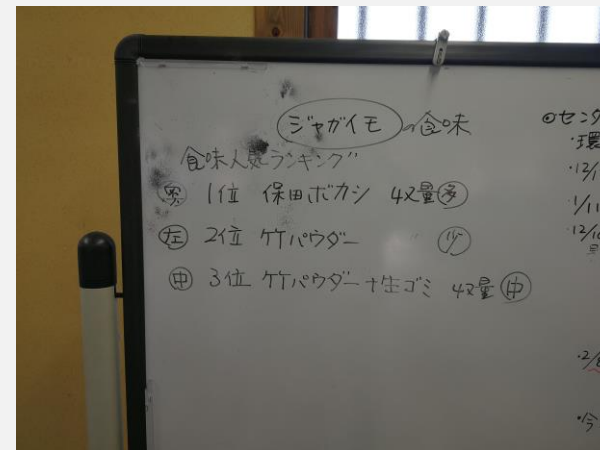 ジャガイモの食味
食味人気ランキング
奥 1位 保田ボカシ 収量 多
左 2位 竹パウダー 少
中 3位 竹パウダー+生ゴミ 収量 中
◎センタ
・環
・12/1
1/11
・12/10
・2/
・今